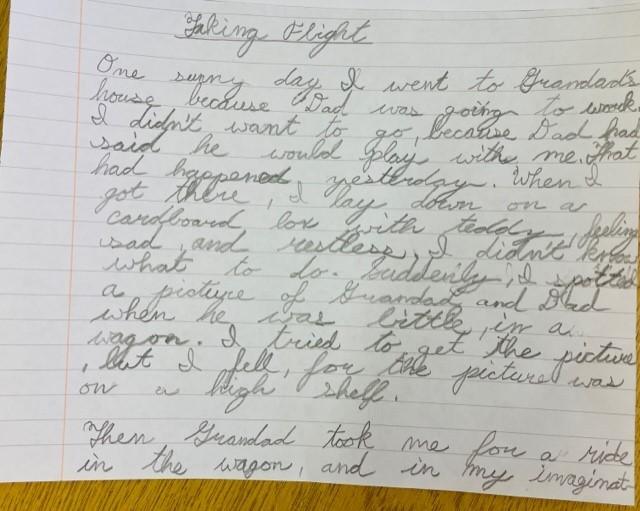 Taking Flight
One sunny day I went to Grandad's
house because Dad was going to work.
I didn't want to go, because Dad had
said he would play with me. That
had happened yesterday. When I
got there, I lay down on a
cardboard box with teddy, feeling
sad, and restless, I didn't know
what to do. Suddenly, I spotted
a picture of Grandad, and Dad
when he was little, in a
wagon. I tried to get the picture
, but I fell, for the picture was
on a high shelf.
Then Grandad took me for a ride
in the wagon, and in my imaginat